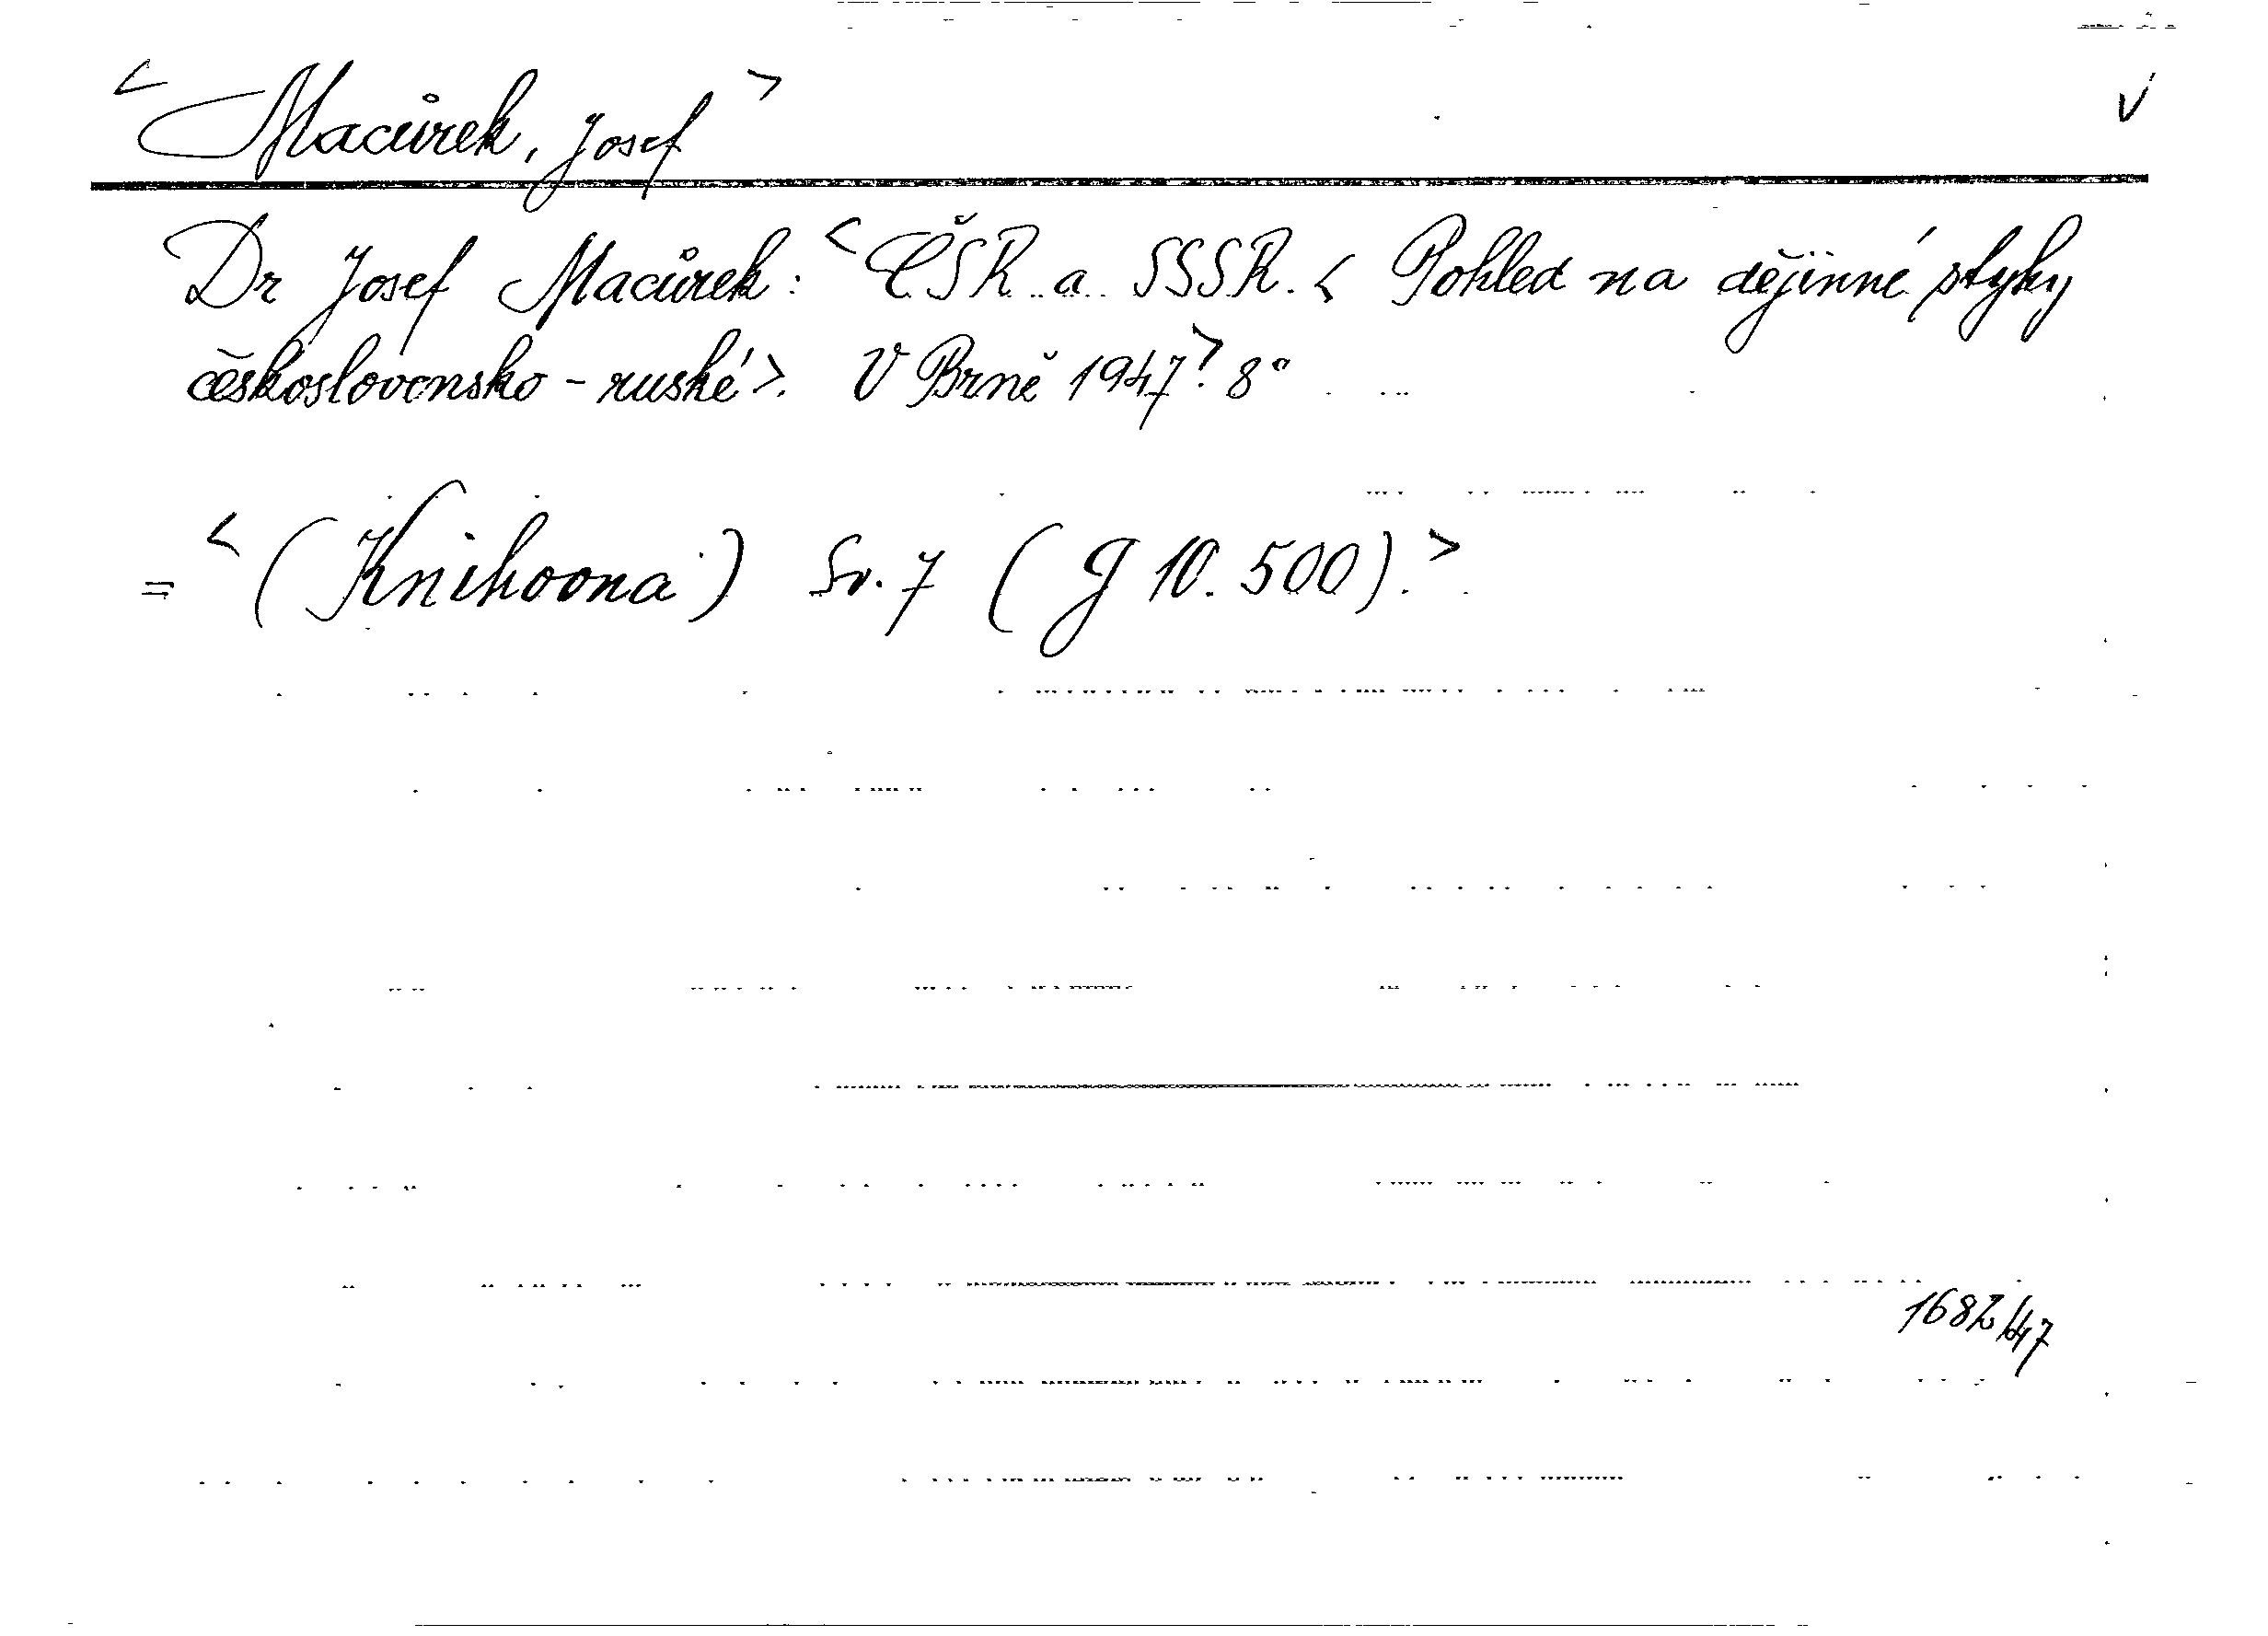 < Macůrek, Josef > v
Dr Josef Macůrek: < ČSR a SSSR. < Pohled na dějinné styky
československo-ruské >. V Brně 1947 >. 8°
= < (Knihovna) Sv. 7 (g 10.500). >